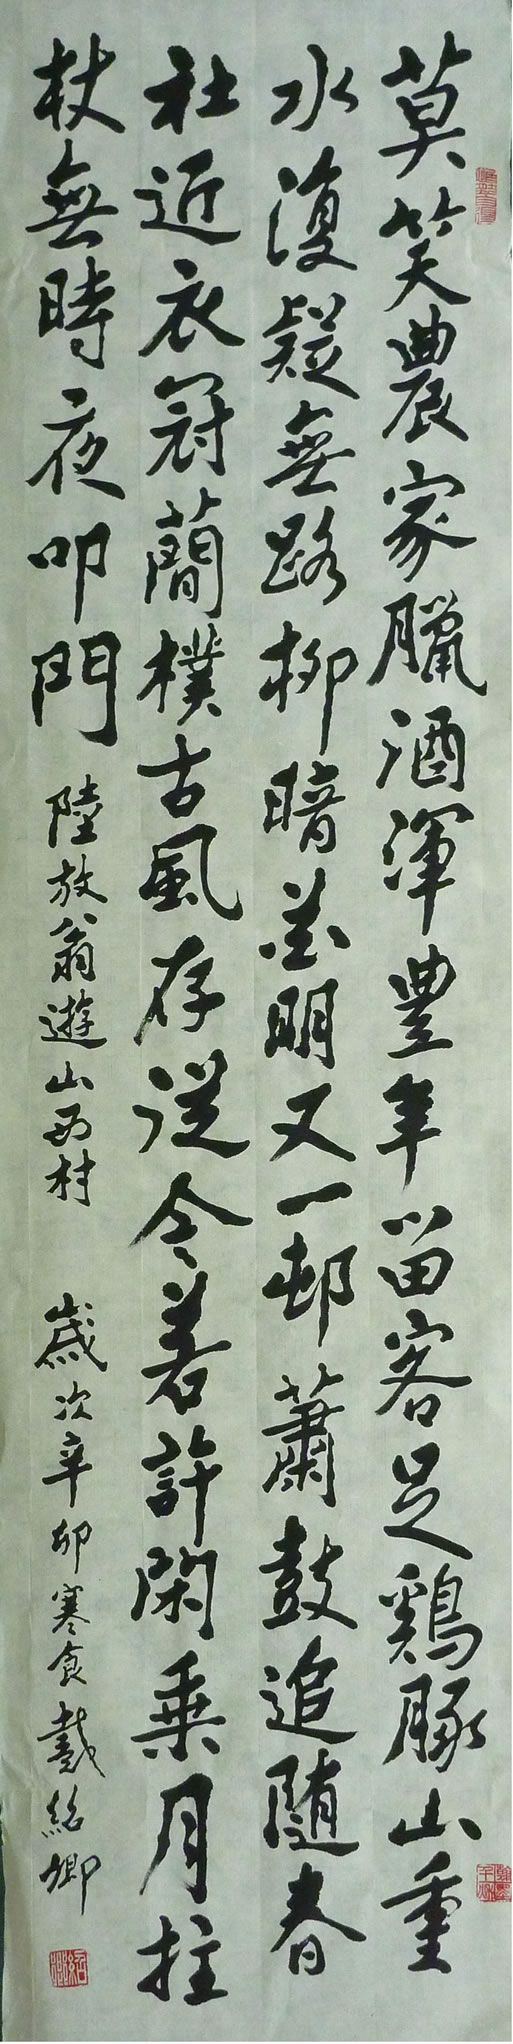 莫笑農家臘酒渾豐年留客足鷄豚山重
水復疑無路柳暗花明又一邨蕭鼓追随春
社近衣冠蕳樸古風存從今若許閑乗月拄
杖無時夜叩門
陸放翁遊山西村
歲次辛卯寒食戴紹卿